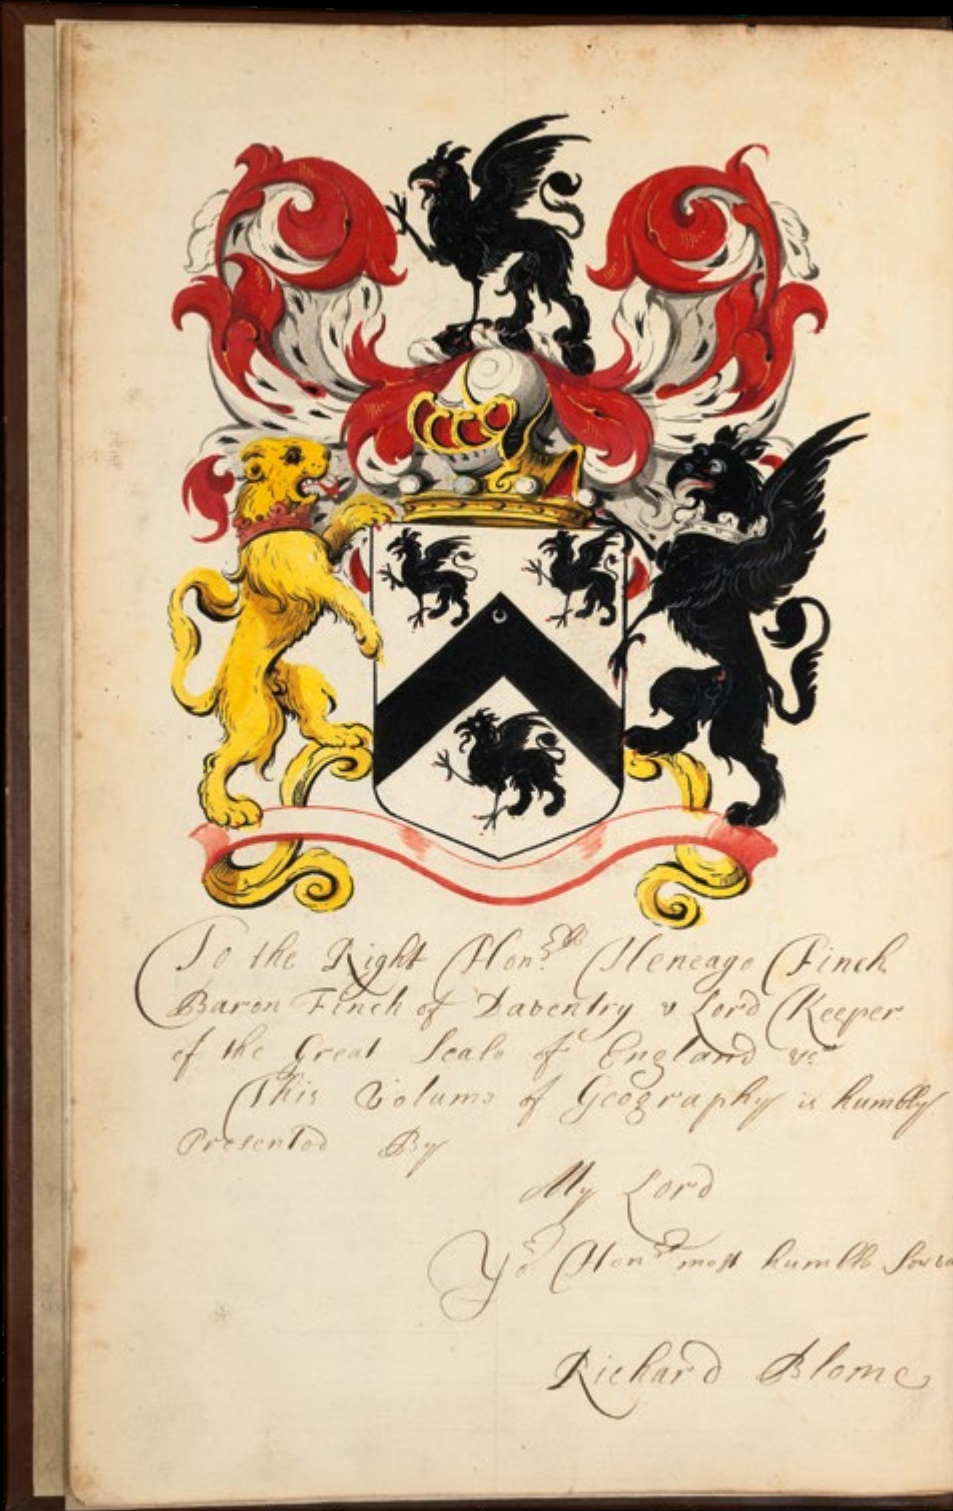 To the Right Hon:ble Heneage Finch
Baron Finch of Daventry & Lord Keeper
of the Great Seale of England &c
This Volume of Geography is humbly
Presented By
My Lord
Yor Honrs most humble
Richard Blome